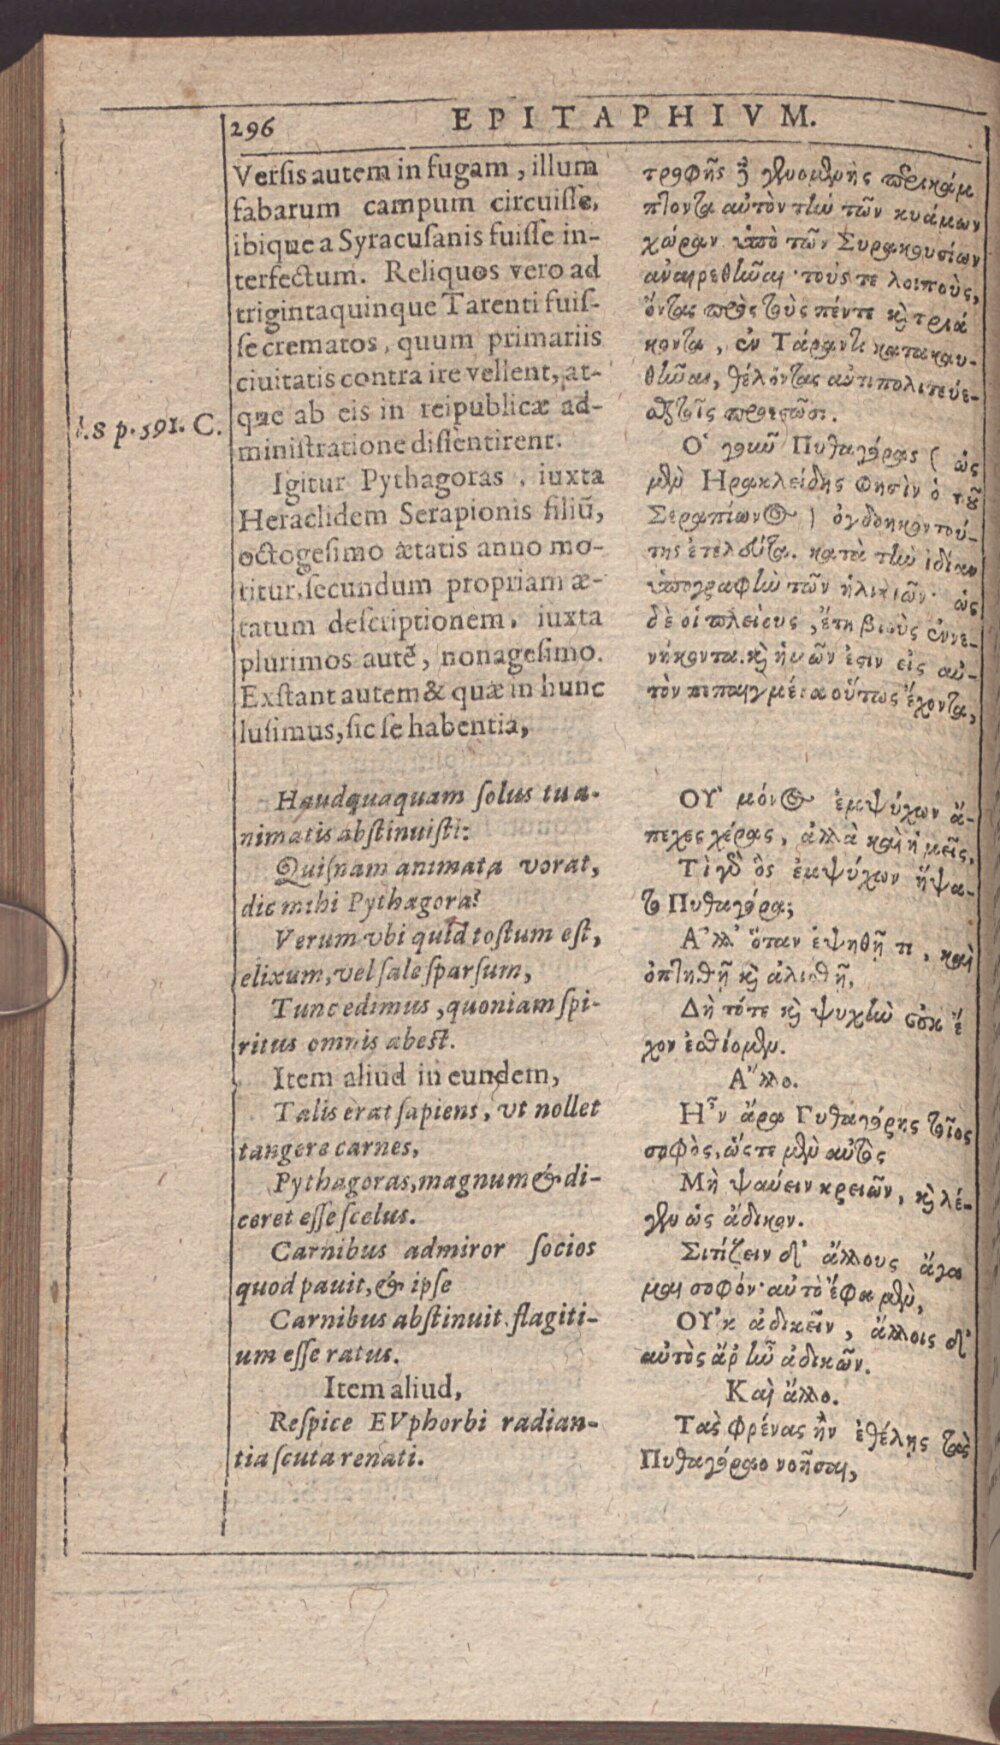 296
EPITAPHIVM.
Versis autem in fugam, illum
fabarum campum circuisse,
ibique a Syracusanis fuisse in-
terfectum. Reliquos vero ad
trigintaquinque Tarenti fuis-
se crematos, quum primariis
ciuitatis contra ire vellent, at-
que ab eis in reipublicæ ad-
ministratione dissentirent.
l.8 p. 591. C.
Igitur Pythagoras, iuxta
Heraclidem Serapionis filiũ,
octogesimo ætatis anno mo-
titur, secundum propriam æ-
tatum descriptionem, iuxta
plurimos autẽ, nonagesimo.
Exstant autem & quæ in hunc
lusimus, sic se habentia,
Haudquaquam solus tu a-
nimatis abstinuisti:
Quisnam animata vorat,
dic mihi Pythagora?
Verum vbi quid tostum est,
elixum, vel sale sparsum,
Tunc edimus, quoniam spi-
ritus omnis abest.
Item aliud in eundem,
Talis erat sapiens, vt nollet
tangere carnes,
Pythagoras, magnum & di-
ceret esse scelus.
Carnibus admiror socios
quod pauit, & ipse
Carnibus abstinuit flagiti-
um esse ratus.
Item aliud,
Respice EVphorbi radian-
tia scuta renati.
τροφῆς ἢ γενομένης περικάμ
πτοντα αὐτὸν τὴν τῶν κυάμων
χώραν ὑπὸ τῶν Συρακουσίων
ἀναιρεθῆναι· τούς τε λοιποὺς,
ὄντας πρὸς τοὺς πέντε καὶ τριά
κοντα, ἐν Τάραντι κατακαυ-
θῆναι, θέλοντας ἀντιπολιτεύε-
σθαι τοῖς προεστῶσι.
Ὁ γοῦν Πυθαγόρας ( ὡς
μὲν Ἡρακλείδης φησὶν ὁ τοῦ
Σεραπίωνος ) ὀγδοηκοντού-
της ἐτελεύτα. κατὰ τὴν ἰδίαν
ὑπογραφὴν τῶν ἡλικιῶν· ὡς
δὲ οἱ πλείους, ἔτη βιοὺς ἐννε-
νήκοντα. καὶ ἡμῶν ἐστιν εἰς αὐ-
τὸν πεπαιγμένα οὕτως ἔχοντα,
ΟΥ᾽ μόνος ἐμψύχων ἄ-
πεχες χέρας, ἀλλὰ καὶ ἡμεῖς,
Τὶ γὰρ ὃς ἐμψύχων ἥψα-
το Πυθαγόρα;
Ἀλλ᾽ ὅταν ἑψηθῇ τι, καὶ
ὀπτηθῇ καὶ ἁλισθῇ,
Δὴ τότε καὶ ψυχὴν οὐκ ἔ
χον ἐσθίομεν.
Ἄλλο.
Ἦν ἄρα Πυθαγόρης τοῖος
σοφὸς, ὥστε μὲν αὐτὸς
Μὴ ψαύειν κρειῶν, καὶ λέ-
γειν ὡς ἄδικον.
Σιτίζειν δ᾽ ἄλλους ἄγα
μαι σοφόν· αὐτὸ ἔφα μὲν,
ΟΥ᾽κ ἀδικεῖν, ἄλλοις δ᾽
αὐτὸς ἄρ᾽ ἦν ἀδικῶν.
Καὶ ἄλλο.
Τὰς φρένας ἢν ἐθέλῃς τὰς
Πυθαγόραο νοῆσαι,